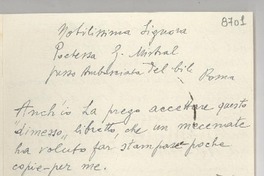 8701
Nobilissima Signora
Poetessa G. Mistral
presso Ambasciata del Cile
Roma
Anch'io La prego accettare questo
"dimesso" libretto, che un mecenate
ha voluto far stampare poche
copie per me.